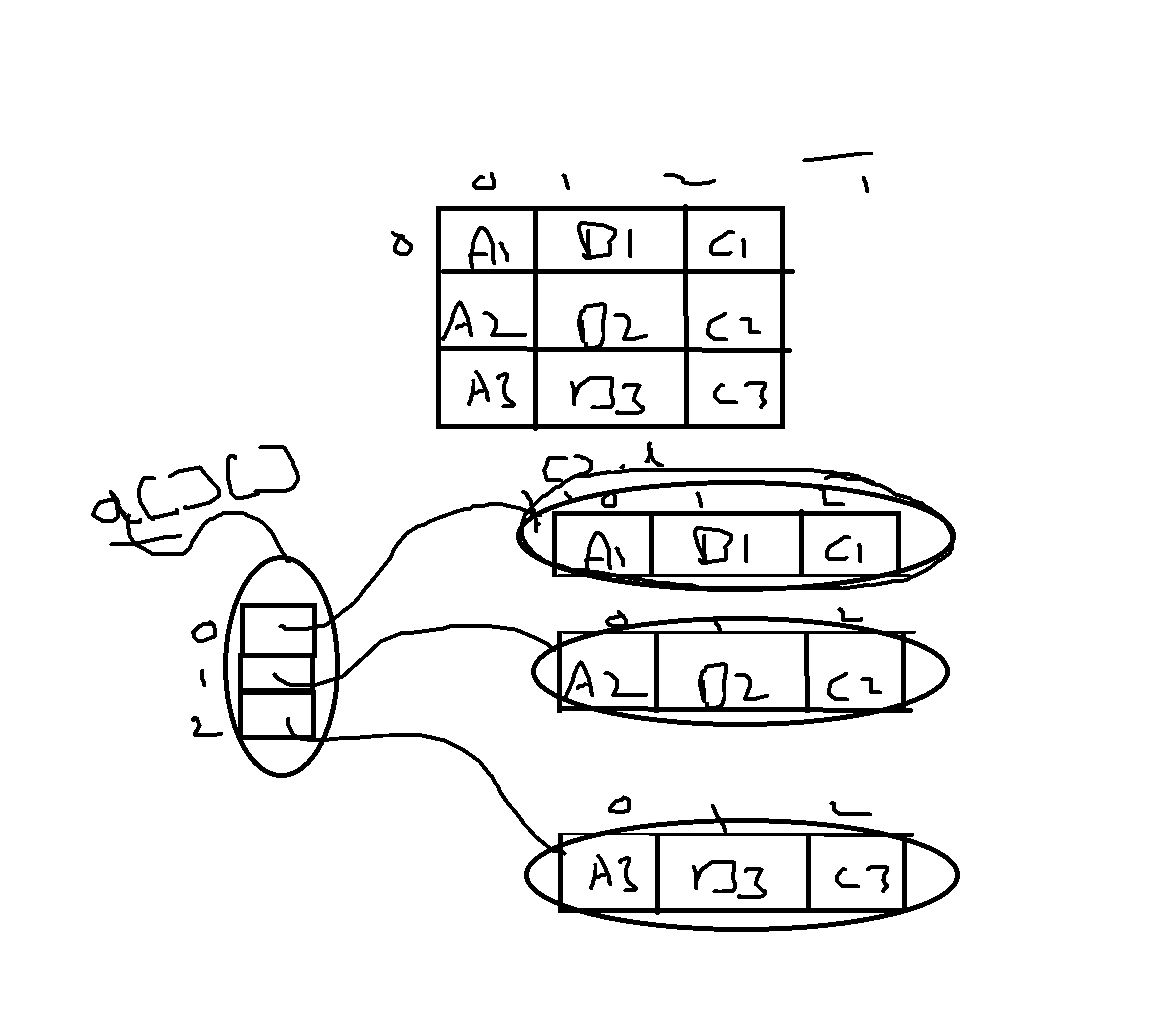 0 1
0 A1 B1 C1
A2 B2 C2
A3 B3 C3
0 1 2
A1 B1 C1
0 1 2
0
A2 B2 C2
1
2
0 1 2
A3 B3 C3